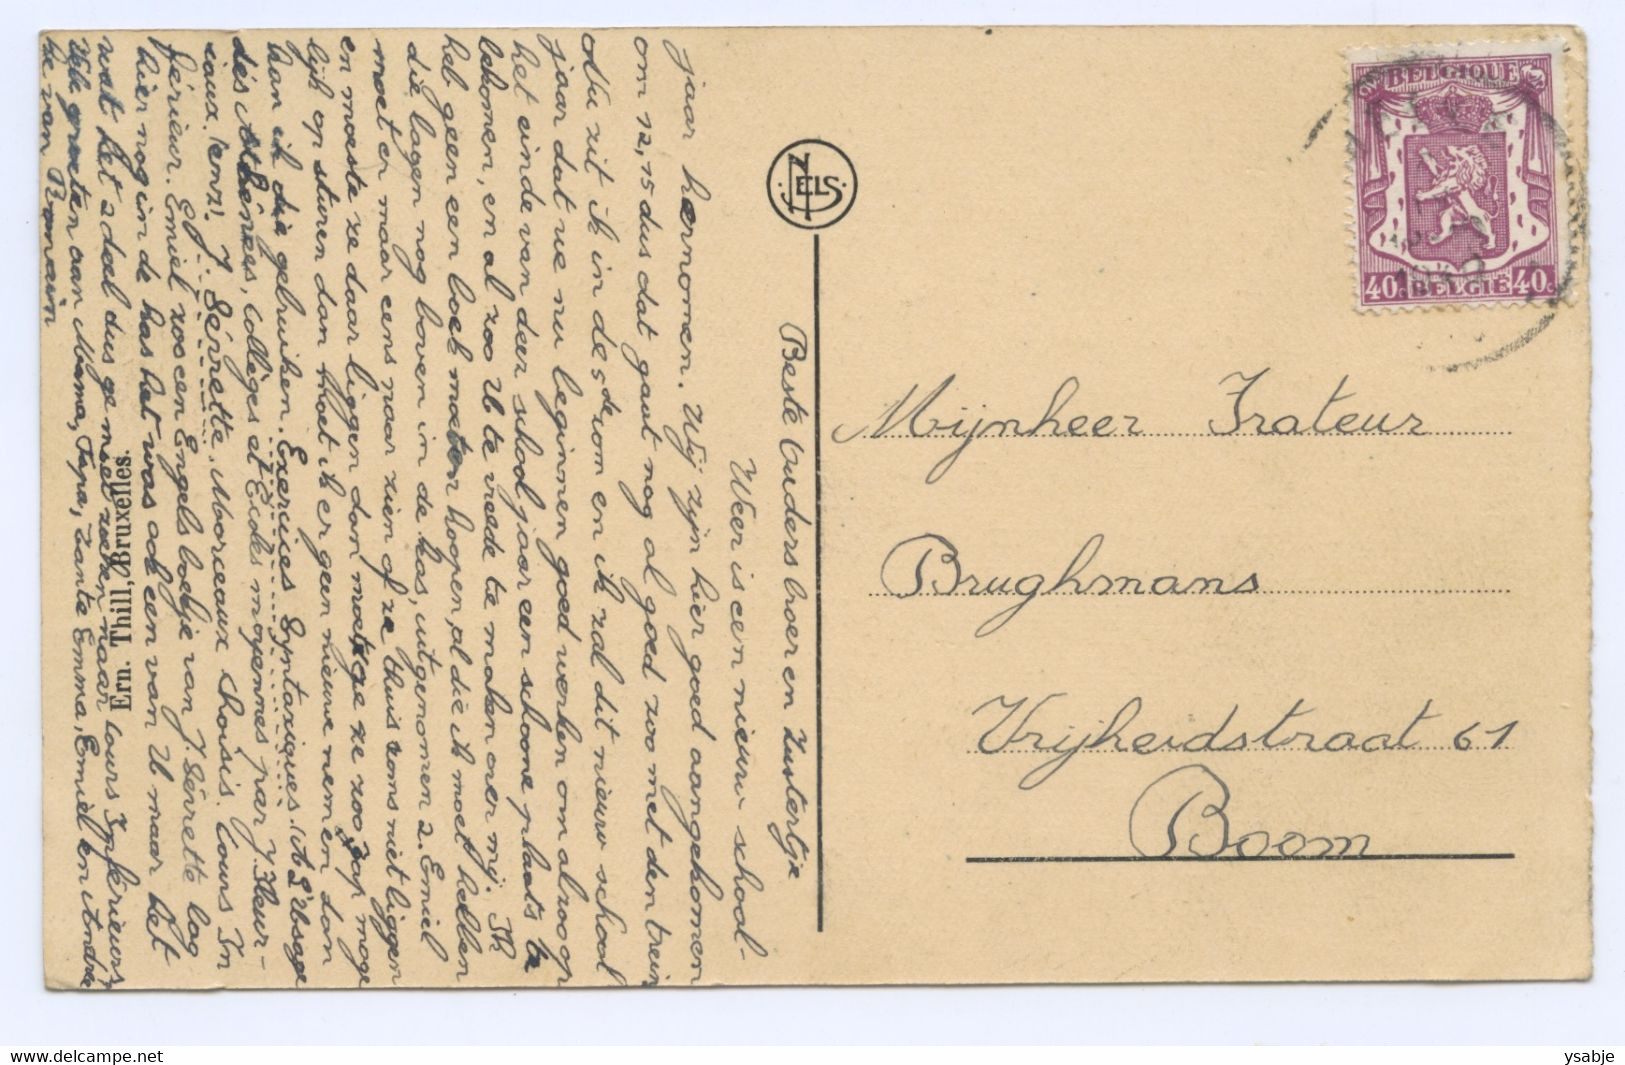 Beste Ouders broer en Zustertje
Weer is een nieuw school-
jaar hernomen. Wij zijn hier goed aangekomen
om 12,15 dus dat gaat nog al goed zoo met den trein
Nu zit ik in de 5de rom en ik zal dit nieuw school
jaar dat we nu beginnen goed werken om alzoo op
het einde van deer schooljaar een schoone plaats te
bekomen, en al zoo U te vrede te maken over mij. Ik
heb geen een boek moeten koopen, al die ik moet hebben
die lagen nog boven in de kas, uitgenomen 2. Emiel
moet er maar eens naar zien of ze thuis soms niet liggen
en moeste ze daar liggen dan moet ge ze zoo rap moge
lijk op sturen dan moet ik er geen nieuwe nemen dan
kan ik die gebruiken. Exercices Syntaxiques. (à l'usage
des Athénées, Collèges et Ecoles moyennes par J Fleur-
iaux. 1 env!. J Sérrette. Morceaux choisis. Cours In
férieur. Emiel zoo een Engels boekje van J. Sérrette lag
hier nog in de kas het was ook een van U maar het
was het 2 deel dus ge moet zoeken naar Cours Inférieur,
Vele groeten aan Mama, Papa, Tante Emma, Emiel en Andre
ke van Romain
Ern. Thill, Bruxelles.
NELS
BELGIQUE
40c BELGIË 40c
Mijnheer Frateur
Brughmans
Vrijheidstraat 61
Boom
ysabje